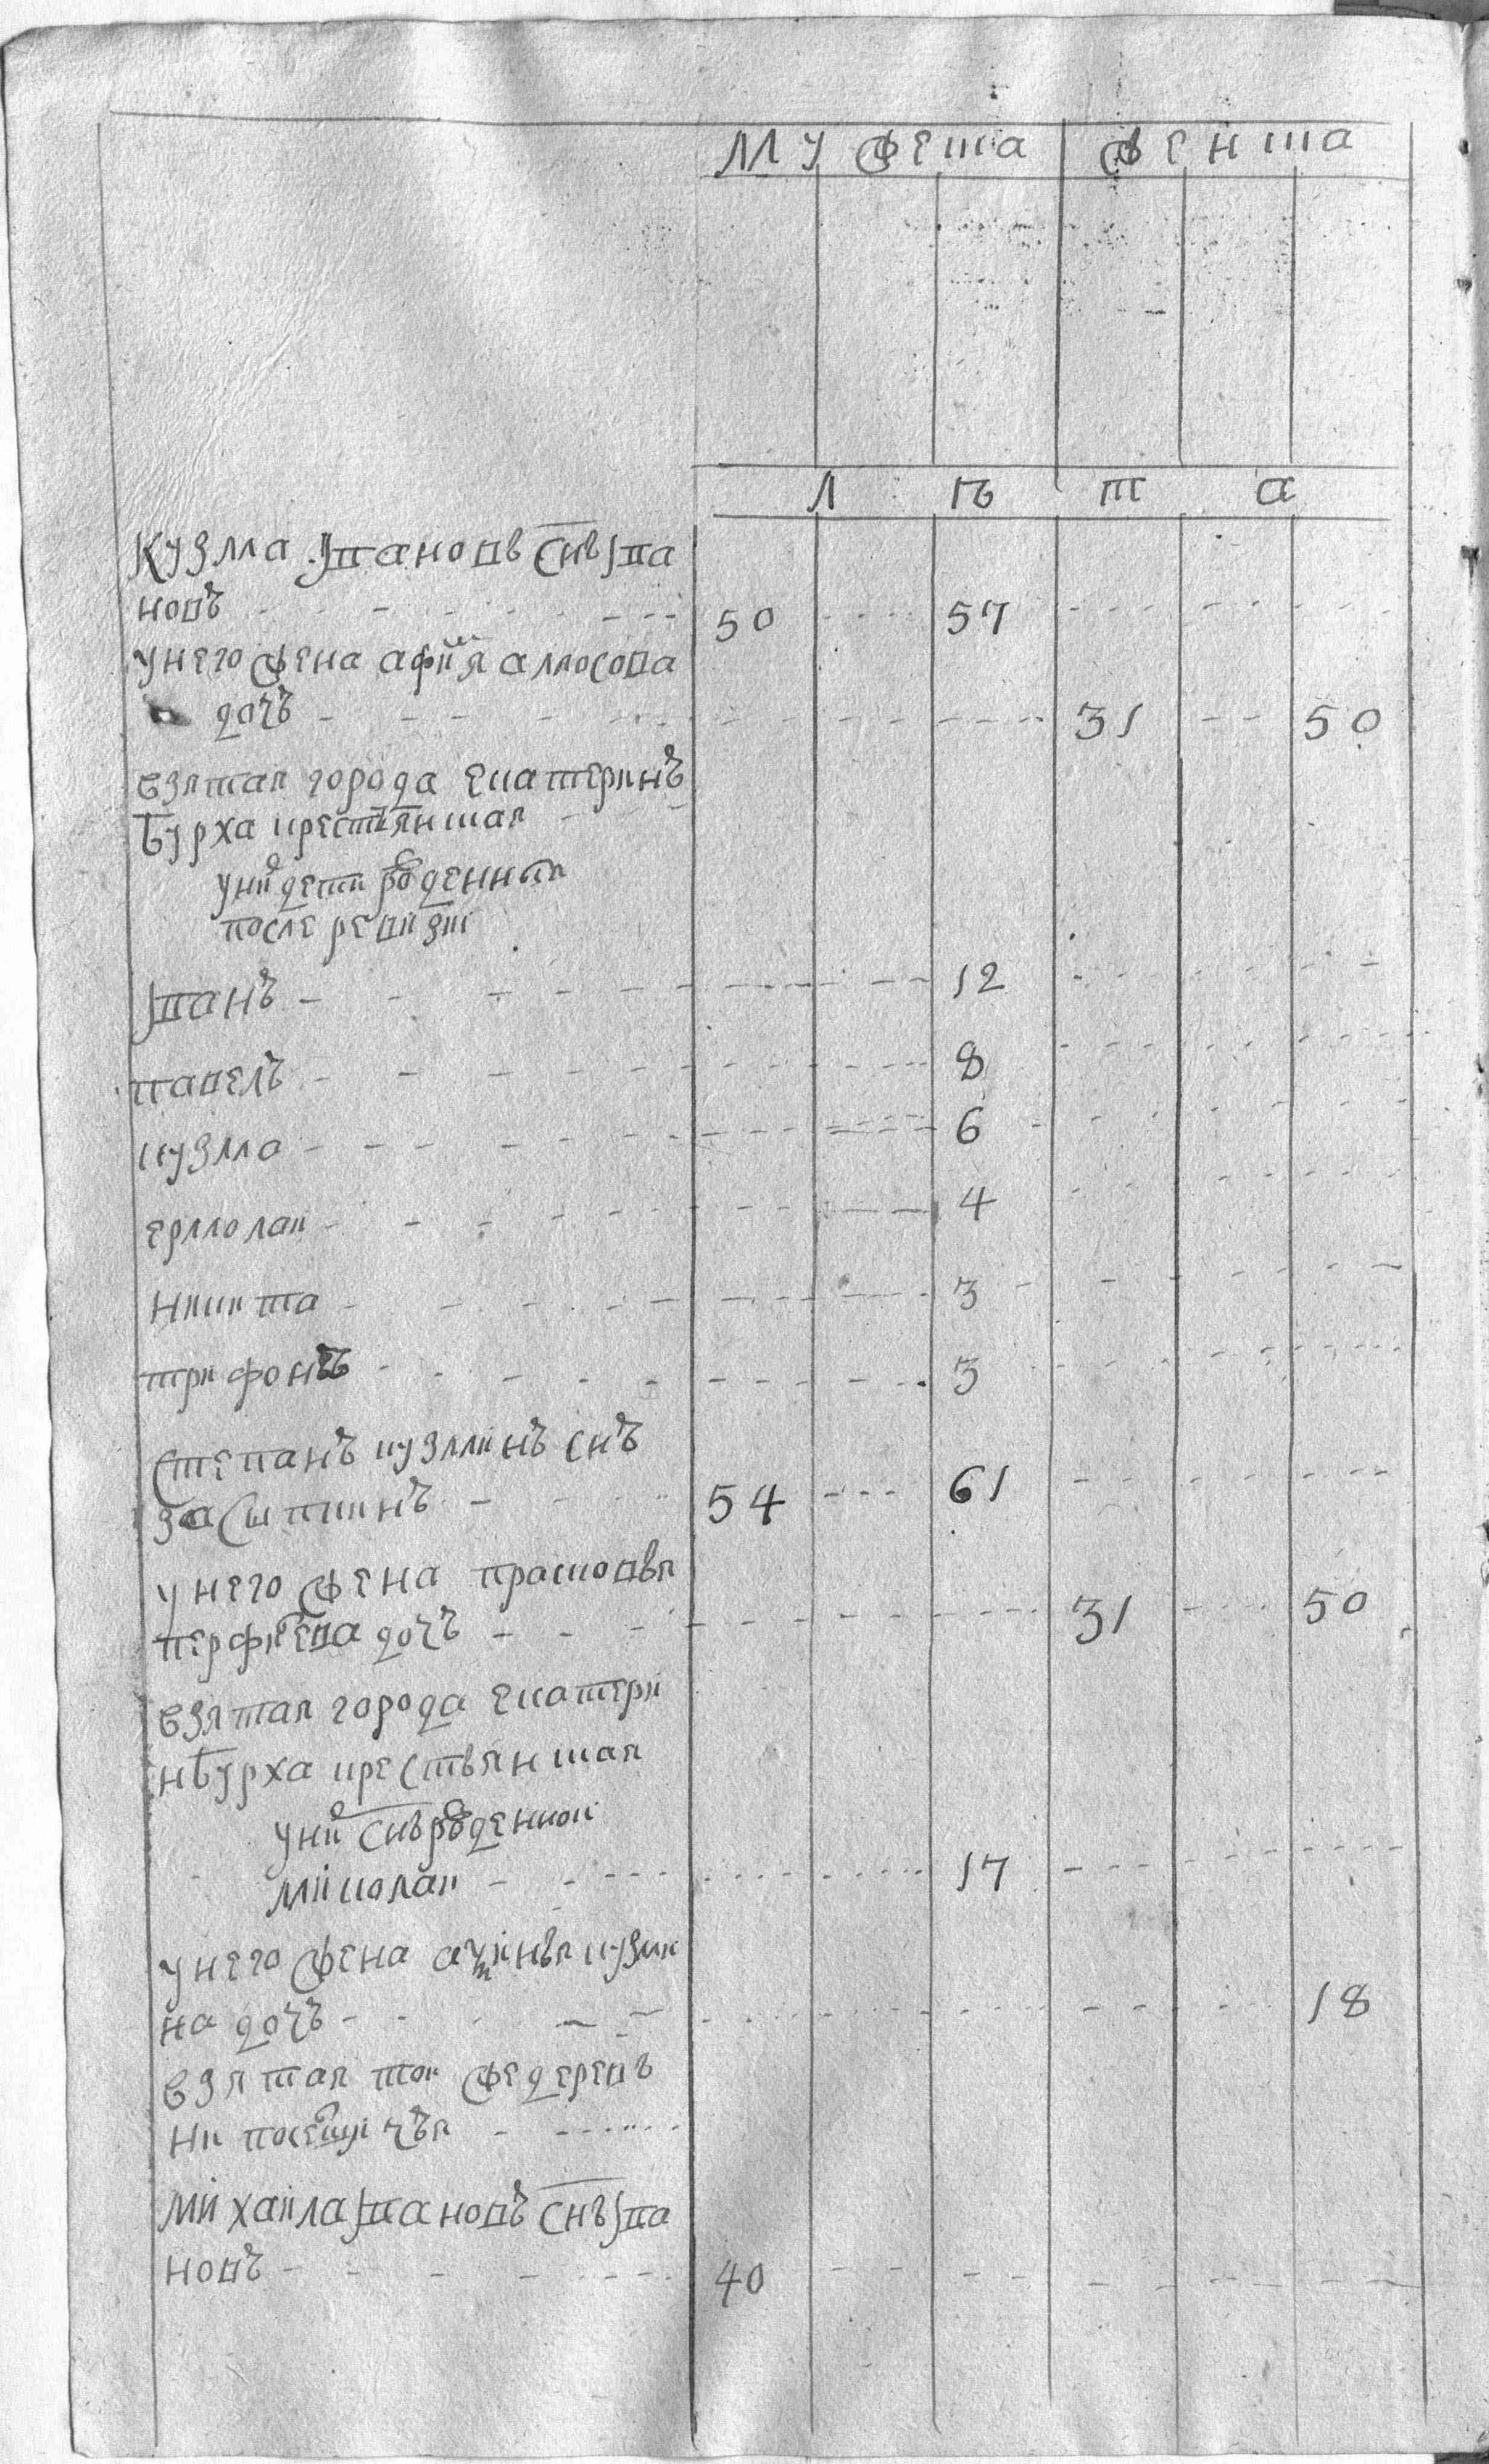 Мужеска женска
л ѣ т а
Кузма Ивановъ снъ Ива
новъ 50 57
унего жена афимья амосова
дочь 31 50
взятая города екатеринъ
бурха крестьянская
уней дети рожденныя
после ревизии
Иванъ 12
павелъ 8
кузма 6
ермолаи 4
никита 3
трифонъ 3
Степанъ кузминъ снъ
засыпкинъ 54 61
унего жена прасковья
перфиева дочь 31 50
взятая города екатери
нбурха крестьянская
уней снъ рожденнои
миколаи 17
унего жена аксинья кузми
на дочь 18
взятая тои же деревъ
ни
михаила Ивановъ снъ Ива
новъ 40